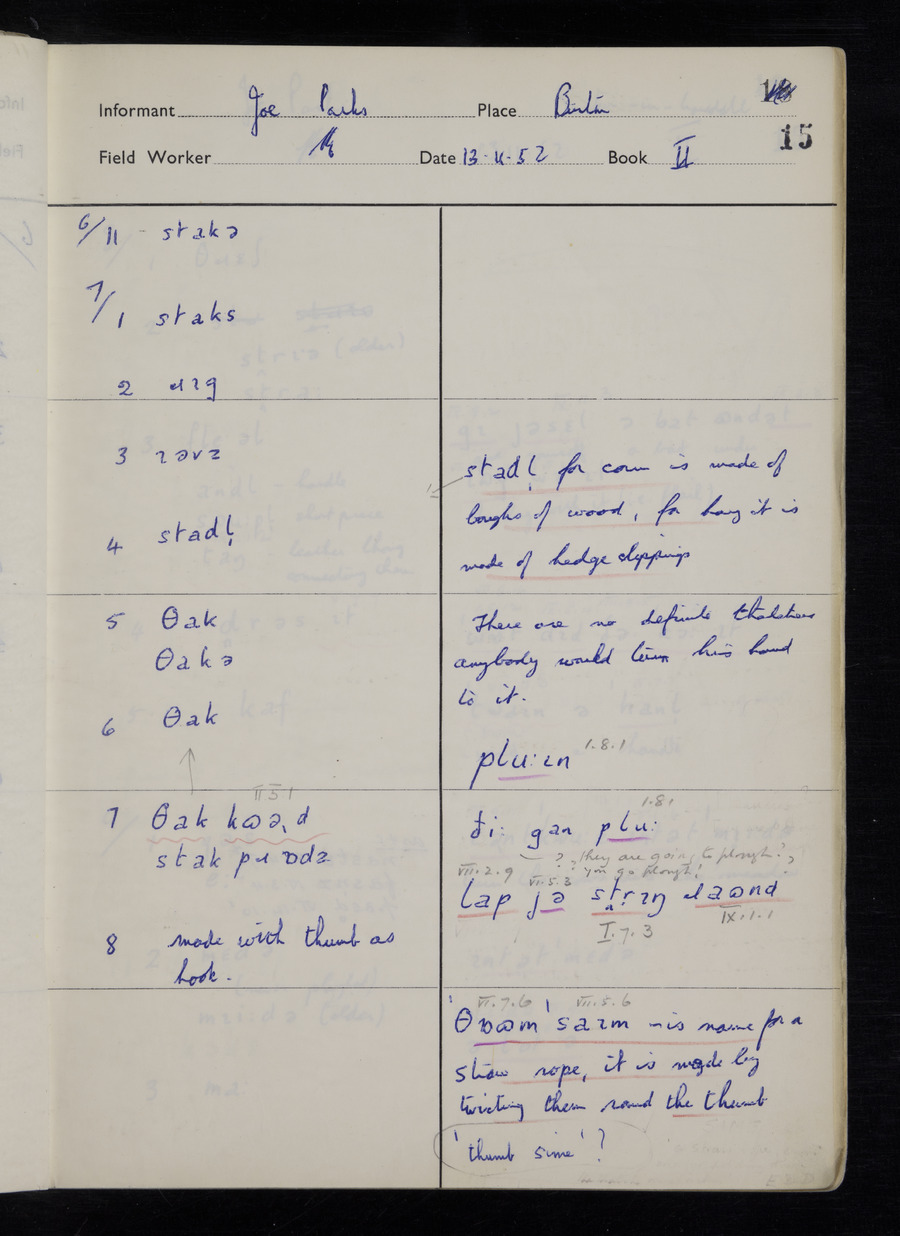 Informant Joe Parks Place Burton
15
Field Worker Date 13·11·52 Book II
6/11 - stakə
7/1 staks
2 ɹɪg
3 ɹəvə
stadl̩ for corn is made of
boughs of wood, for hay it is
4 stadl̩
made of hedge clippings
5 θak
There are no definite thatchers
θakə
anybody would turn his hand
to it.
6 θak
plu:ɪn 1.8.1
II 5 1
7 θak kɷə,d
ði: gan plu: 1.8.1
stak pɹɒdz
? 'they are going to plough'?
'you go plough'?
VII.2.9 VII.5.3
lap jə strɪŋ ɹaɷnd
I.7.3 IX.1.1
8 made with thumb as
hook.
VI.7.6 VII.5.6
'θɒɷm 'saɪm - is name for a
straw rope, it is made by
twisting them round the thumb
'thumb sime'?